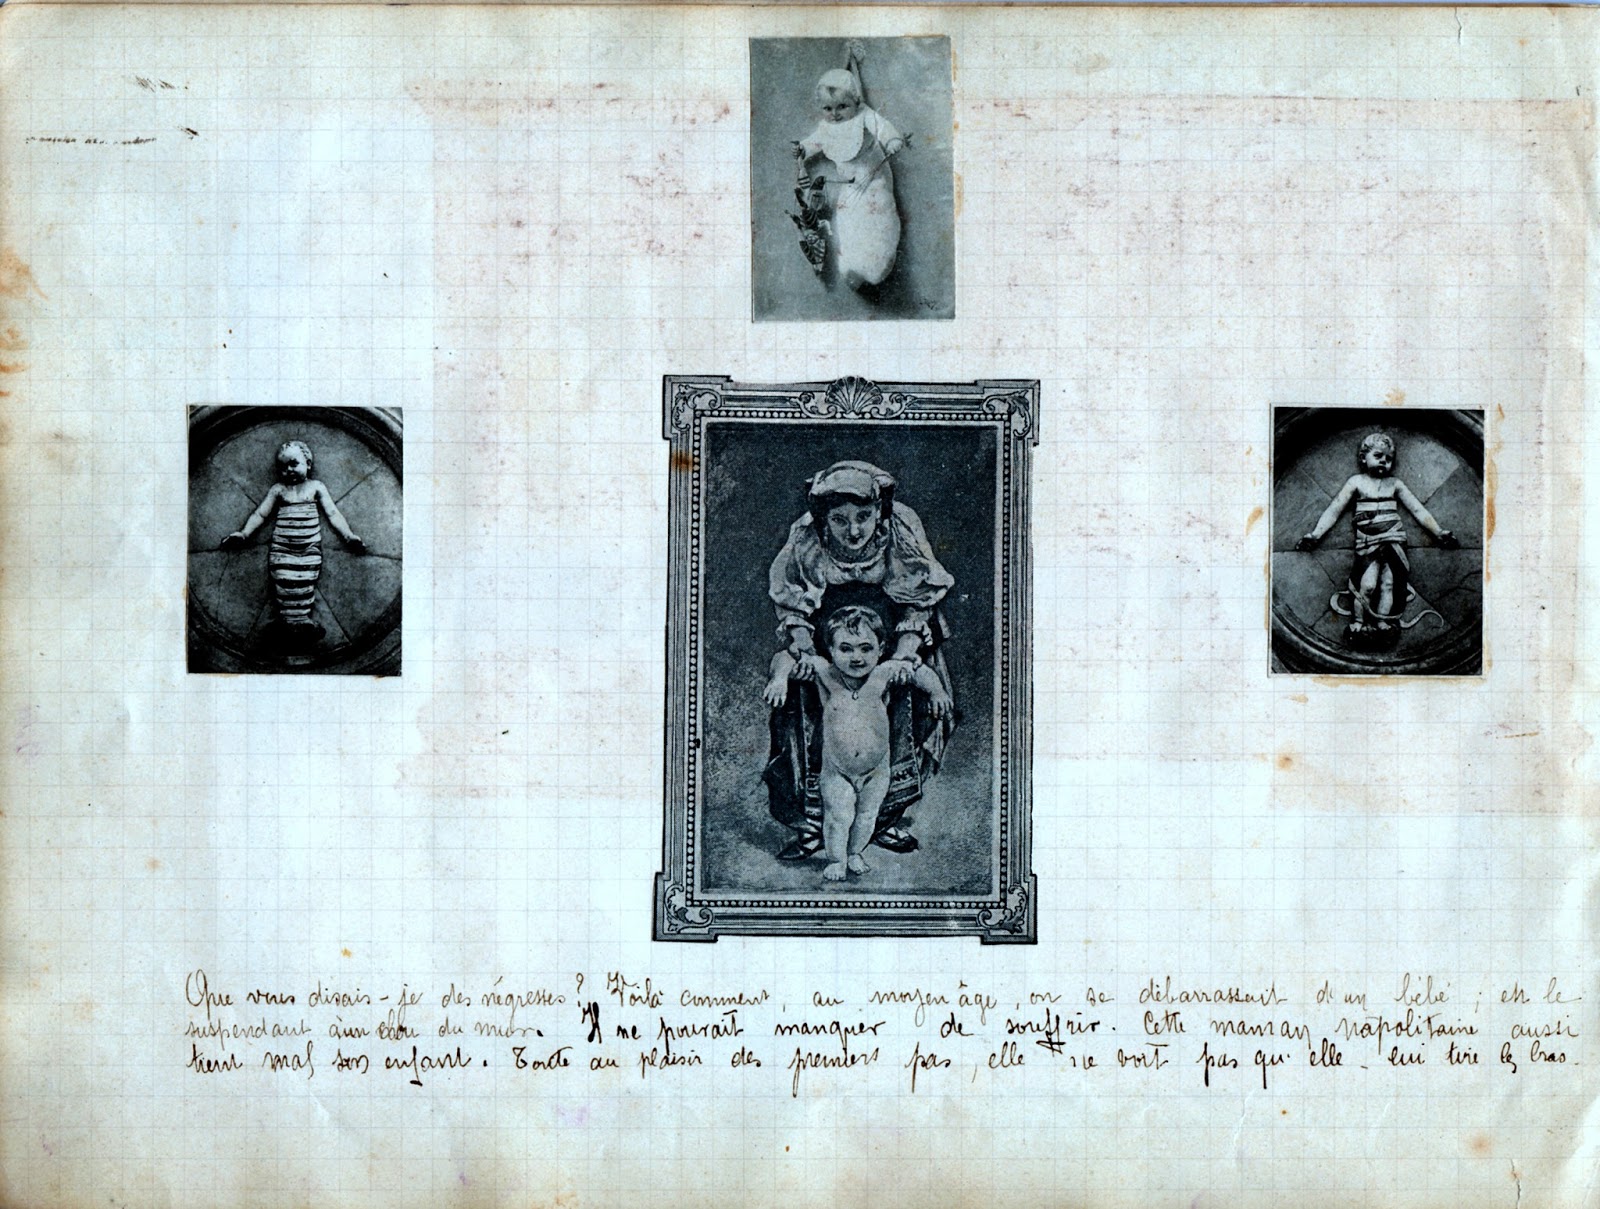 Que vous disais-je des négresses? Voilà comment, au moyen âge, on se débarrassait d'un bébé; en le
suspendant à un clou du mur. Il ne pouvait manquer de souffrir. Cette maman napolitaine aussi
tient mal son enfant. Toute au plaisir des premiers pas, elle ne voit pas qu'elle lui tire les bras.